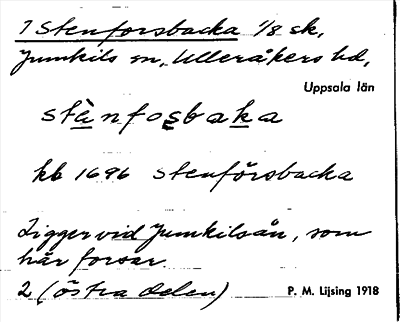 7 Stenforsbacka 1/8 sk,
Jumkils sn, Ulleråkers hd,
Uppsala län
stä̀nfosbaka
kb 1696 Stenförsbacka
Ligger vid Jumkilsån, som
här forsar.
2 (östra delen)
P. M. Lijsing 1918